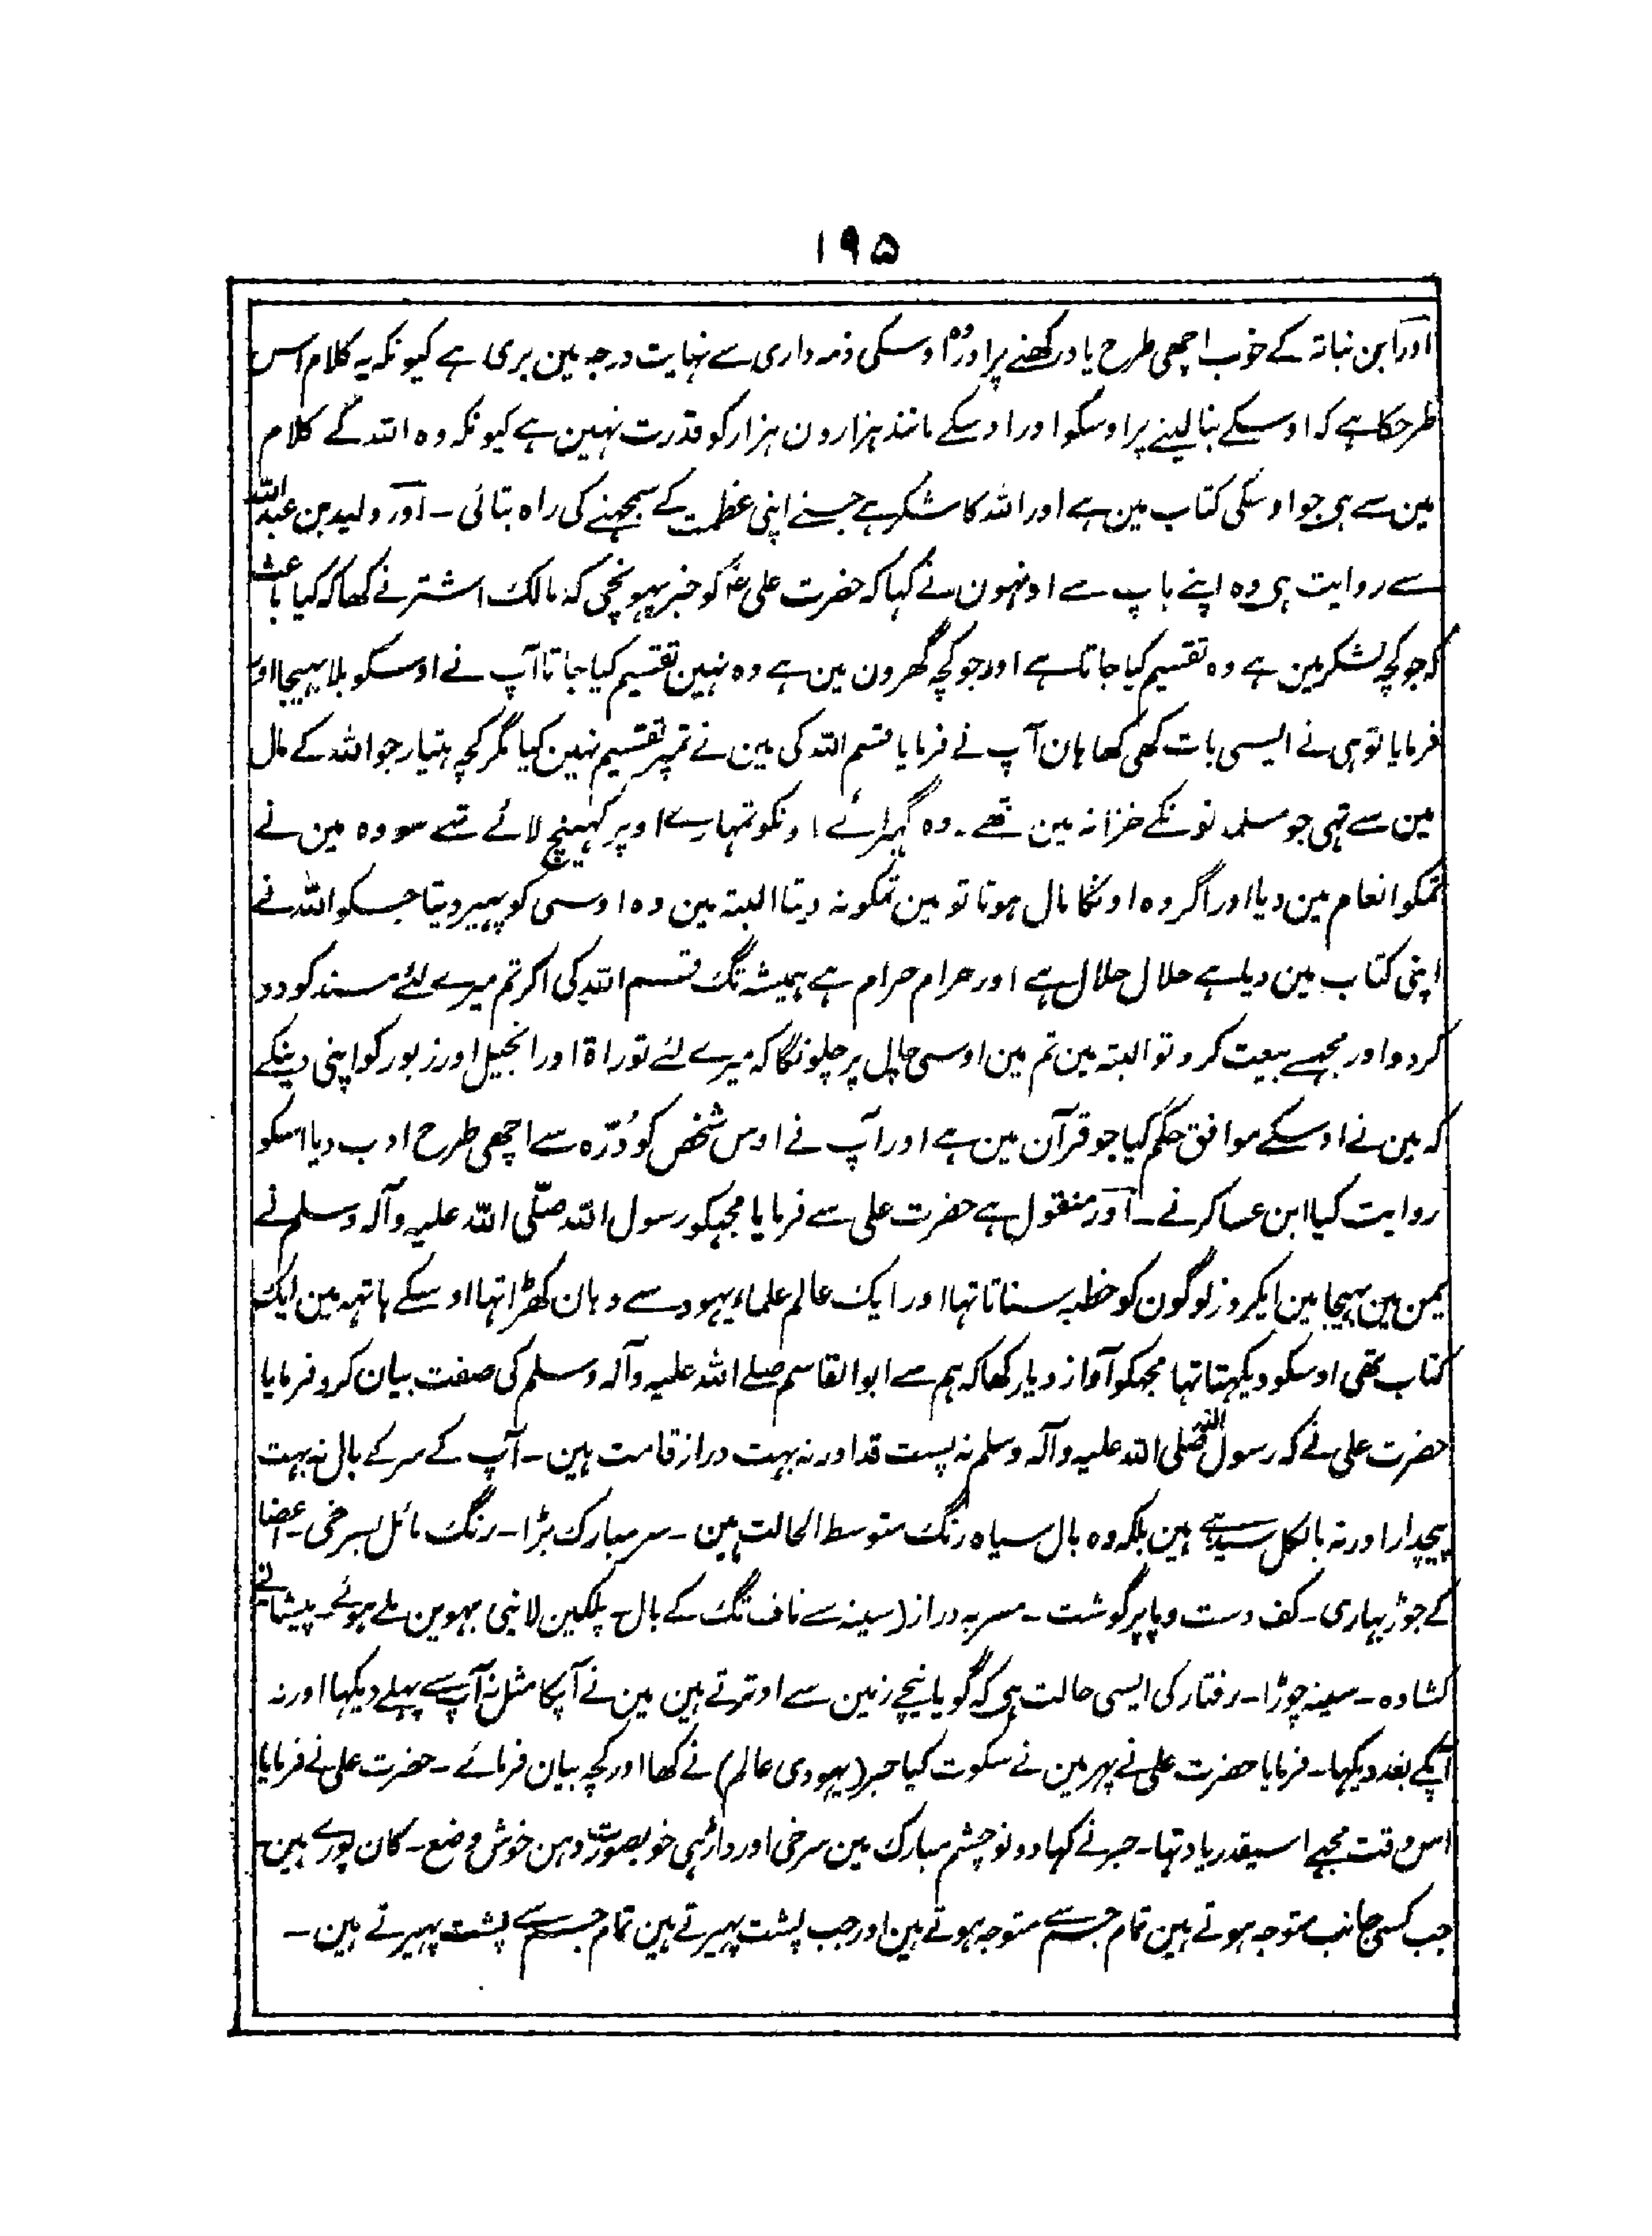 ۱۹۵
اور ابن نباتہ کے خوب اچھی طرح یاد رکھنے پر اور وہ اوسکی ذمہ داری سے نہایت درجہ مین بری ہے کیونکہ یہ کلام اس
طرحکا ہے کہ اوسکے بنا لینے پر اوسکو اور اوسکے مانند ہزارون ہزار کو قدرت نہین ہے کیونکہ وہ اللہ کے کلام
مین سے ہی جو اوسکی کتاب مین ہے اور اللہ کا شکر ہے جسنے اپنی عظمت کے سمجھنے کی راہ بتائی ۔ اور ولید بن عبد اللہ
سے روایت ہی وہ اپنے باپ سے اونہون نے کہا کہ حضرت علی ؑ کو خبر پہونچی کہ مالک اشتر نے کھا کہ کیا باعث
کہ جو کچہ لشکر مین ہے وہ تقسیم کیا جاتا ہے اور جو کچہ گھرون مین ہے وہ نہین تقسیم کیا جاتا آپ نے اوسکو بلا بہیجا اور
فرمایا تو ہی نے ایسی بات کھی کھا ہان آپ نے فرمایا قسم اللہ کی مین نے تمپر تقسیم نہین کیا مگر کچہ ہتیار جو اللہ کے مال
مین سے تہی جو مسلمانونکے خزانہ مین تھے ۔ وہ اونکو تمہارے اوپر کہینچ لائے تہے سو وہ مین نے
تمکو انعام مین دیا اور اگر وہ اونکا مال ہوتا تو مین تمکو نہ دیتا البتہ مین وہ اوسی کو پہیر دیتا جسکو اللہ نے
اپنی کتاب مین دیا ہے حلال حلال ہے اور حرام حرام ہے ہمیشہ تک قسم اللہ کی اگر تم میرے لئے مسند کو دو
کر دو اور مجہسے بیعت کرو تو البتہ مین تم مین اوسی چال پر چلونگا کہ میرے لئے توراۃ اور انجیل اور زبور گواہی دینگے
کہ مین نے اوسکے موافق حکم کیا جو قرآن مین ہے اور آپ نے اوس شخص کو دُرّہ سے اچھی طرح ادب دیا اسکو
روایت کیا ابن عساکر نے ۔ اور منقول ہے حضرت علی سے فرمایا مجہکو رسول اللہ صلّی اللہ علیہ وآلہ وسلم نے
یمن مین بہیجا مین ایکروز لوگون کو خطبہ سناتا تہا اور ایک عالم علماء یہود سے وہان کھڑا تہا اوسکے ہاتہہ مین ایک
کتاب تھی اوسکو دیکہتا تہا مجہکو آواز دیا کھا کہ ہم سے ابوالقاسم صلے اللہ علیہ وآلہ وسلم کی صفت بیان کرو فرمایا
حضرت علی نے کہ رسول اللہ صلی اللہ علیہ وآلہ وسلم نہ پست قد اور نہ بہت دراز قامت ہین ۔ آپ کے سر کے بال نہ بہت
پیچدار اور نہ بالکل سیدہے ہین بلکہ وہ بال سیاہ رنگ متوسط الحالت ہین ۔ سر مبارک بڑا ۔ رنگ مائل بسرخی ۔ اعضا
کے جوڑ بہاری ۔ کف دست و پا پر گوشت ۔ مسربہ دراز (سینہ سے ناف تک کے بال ۔ پلکین لانبی بہوین ملے ہوئے ۔ پیشانی
کشادہ ۔ سینہ چوڑا ۔ رفتار کی ایسی حالت ہی کہ گویا نیچے زمین سے اوترتے ہین مین نے آپکا مثل نہ آپ سے پہلے دیکہا اور نہ
آپکے بعد دیکہا ۔ فرمایا حضرت علی نے پہر مین نے سکوت کیا حبر (یہودی عالم) نے کھا اور کچہ بیان فرمائے ۔ حضرت علی نے فرمایا
اس وقت مجہے اسیقدر یاد تہا ۔ حبر نے کہا دونو چشم مبارک مین سرخی اور داڑہی خوبصورت دہن خوش وضع ۔ کان پورے ہین
جب کسی جانب متوجہ ہوتے ہین تمام جسم سے متوجہ ہوتے ہین اور جب پشت پہیرتے ہین تمام جسم سے پشت پہیرتے ہین ۔